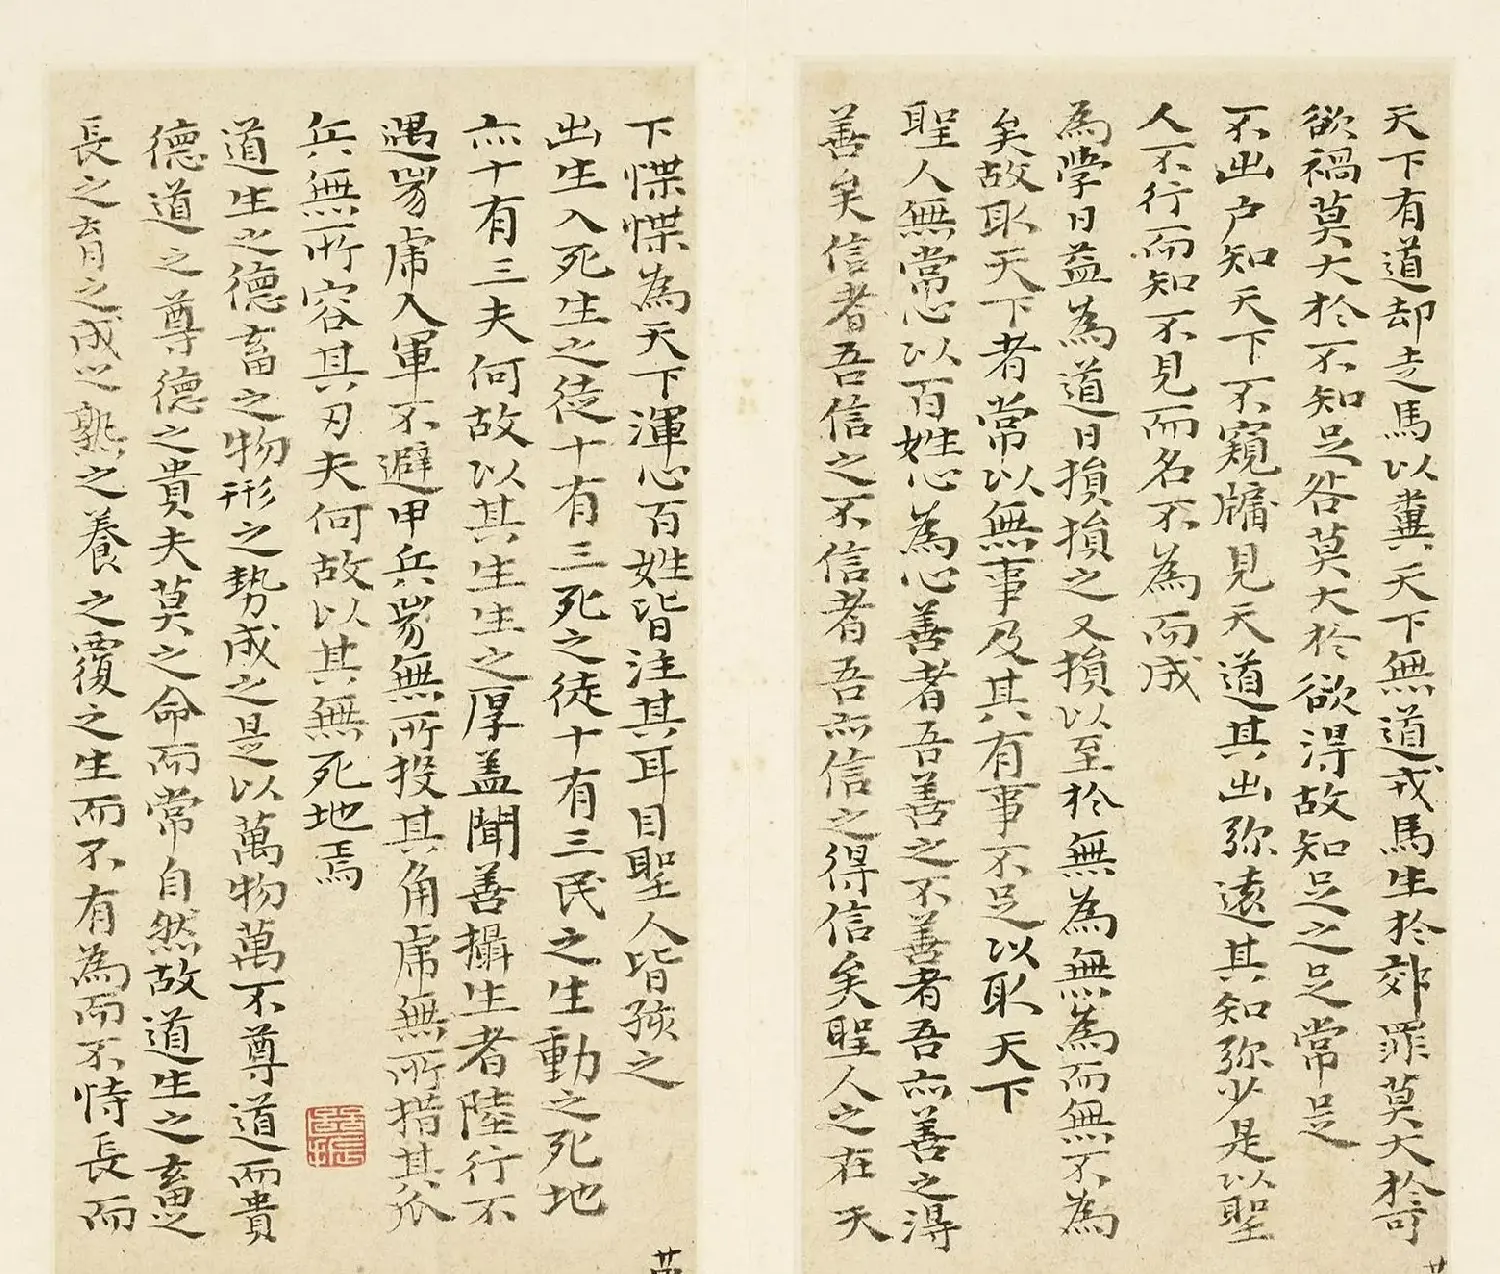 天下有道却走馬以糞天下無道戎馬生於郊罪莫大於可
欲禍莫大於不知足咎莫大於欲得故知足之足常足
不出户知天下不窺牖見天道其出弥遠其知弥少是以聖
人不行而知不見而名不為而成
為學日益為道日損損之又損以至於無為無為而無不為
矣故取天下者常以無事及其有事不足以取天下
聖人無常心以百姓心為心善者吾善之不善者吾亦善之得
善矣信者吾信之不信者吾亦信之得信矣聖人之在天
下惵惵為天下渾心百姓皆注其耳目聖人皆孩之
出生入死生之徒十有三死之徒十有三民之生動之死地
亦十有三夫何故以其生生之厚盖聞善攝生者陸行不
遇兕虎入軍不避甲兵兕無所投其角虎無所措其爪
兵無所容其刃夫何故以其無死地焉
道生之德畜之物形之勢成之是以萬物萬不尊道而貴
德道之尊德之貴夫莫之命而常自然故道生之畜之
長之育之成之熟之養之覆之生而不有為而不恃長而